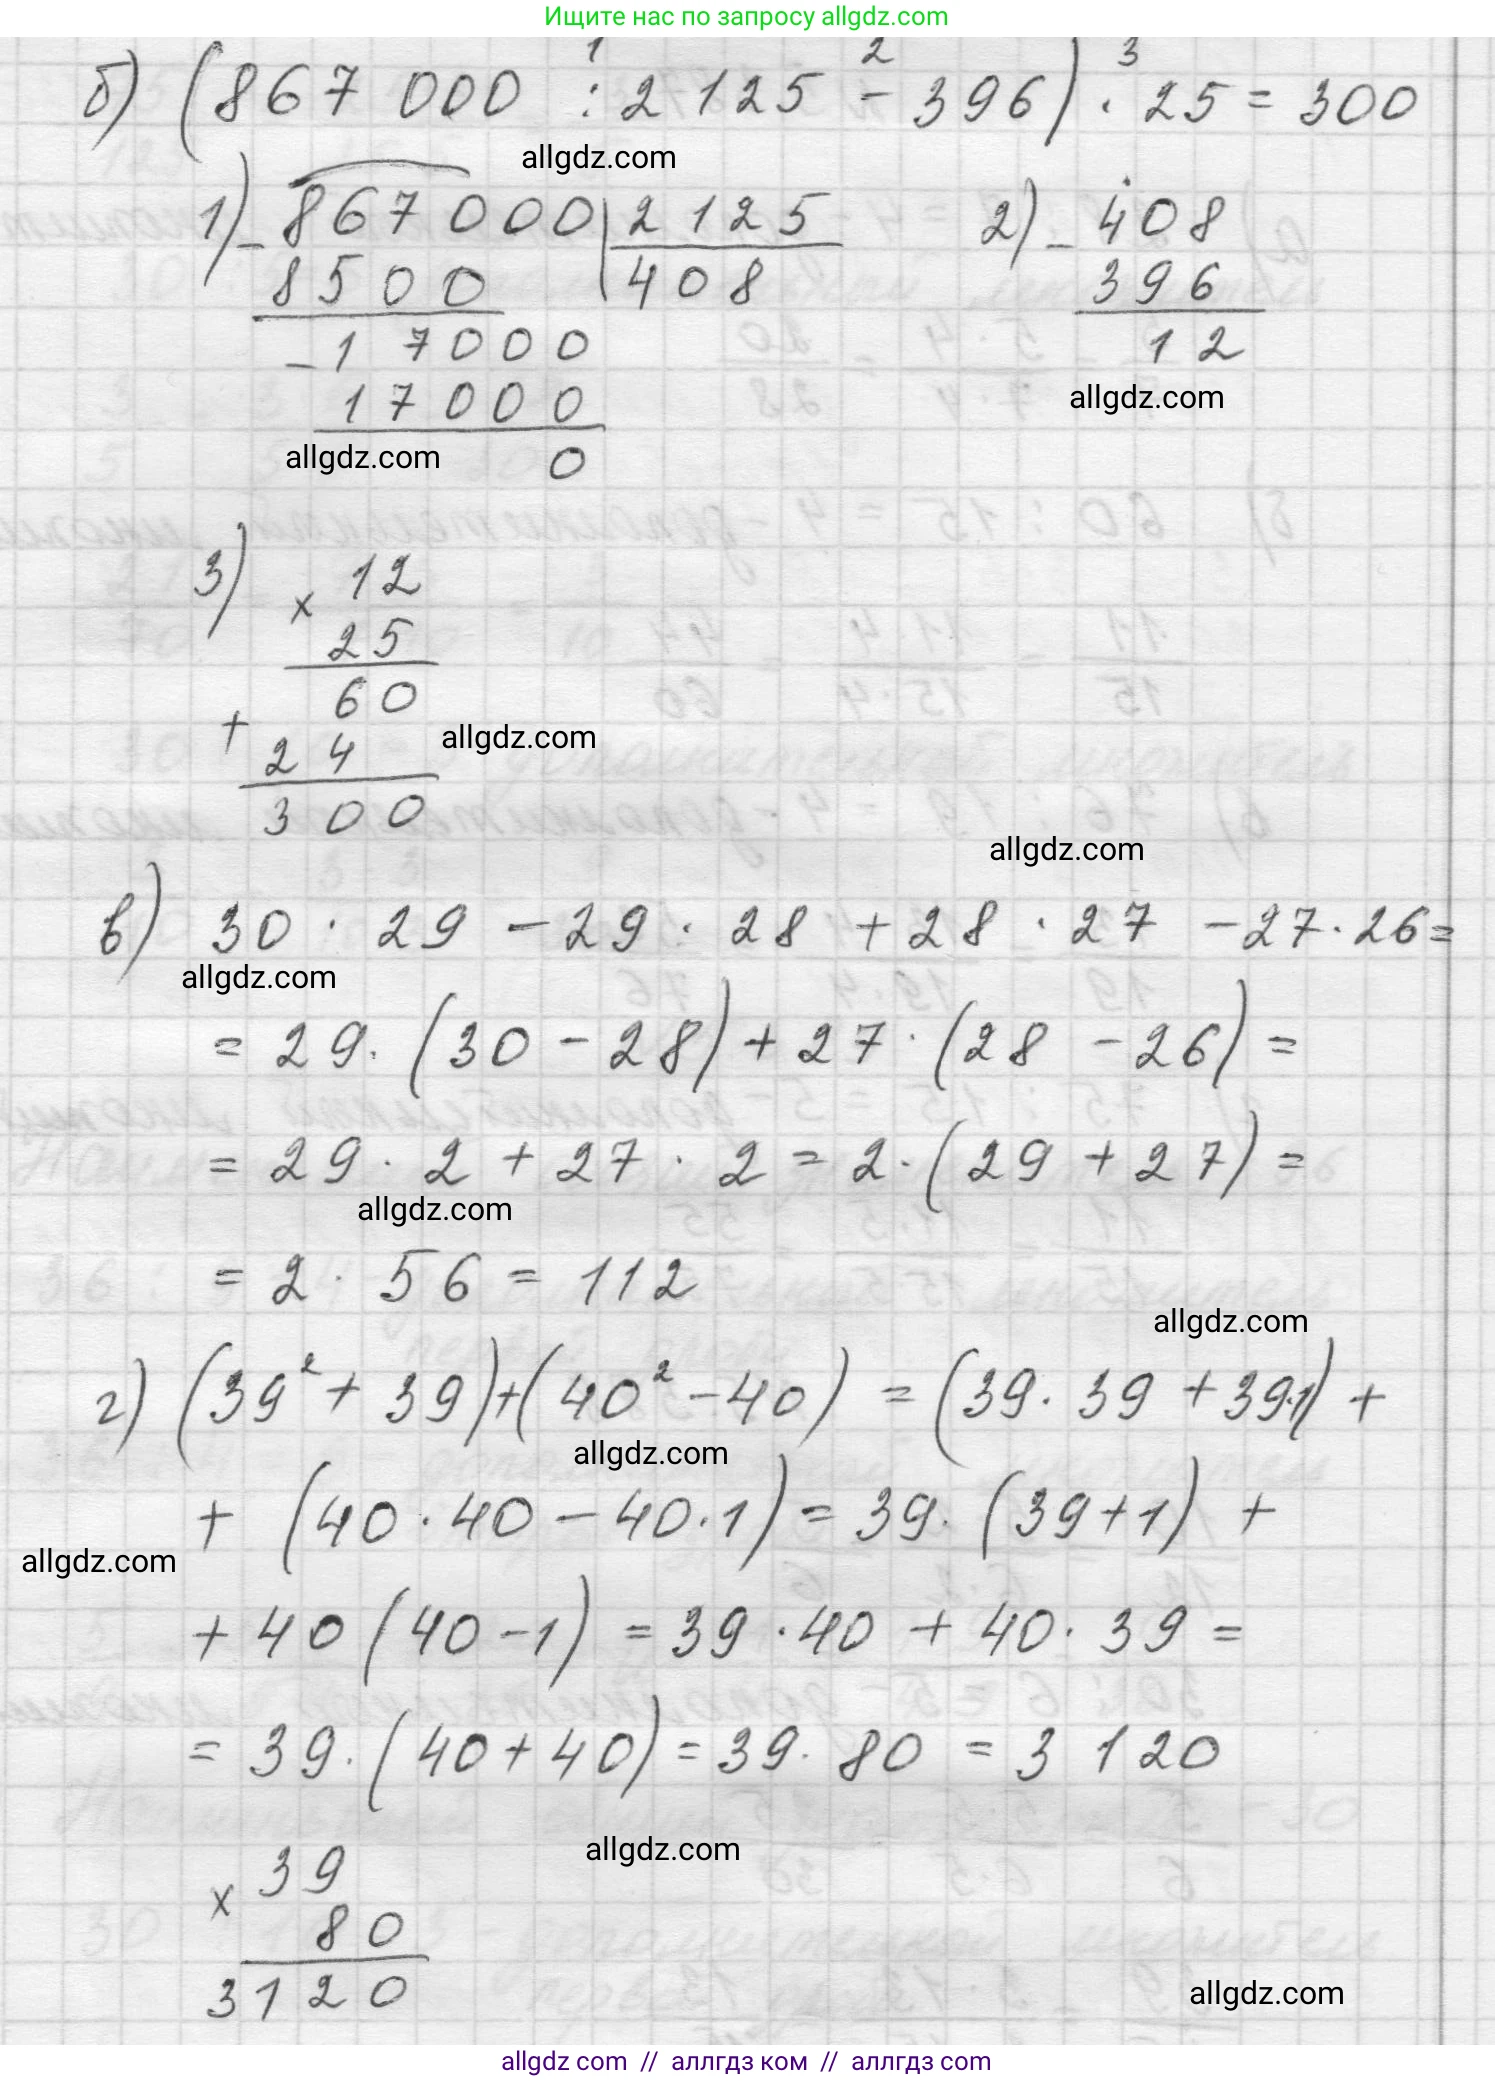 Ищите нас по запросу allgdz.com
1 2 3
б) (867 000 : 2125 - 396) · 25 = 300
allgdz.com
1) - 867000 | 2125
8500 | 408
- 17000
17000
0
allgdz.com
2) - 408
396
12
allgdz.com
3) × 12
25
60
+
24
300
allgdz.com
allgdz.com
в) 30 · 29 - 29 · 28 + 28 · 27 - 27 · 26 =
allgdz.com
= 29 · (30 - 28) + 27 · (28 - 26) =
= 29 · 2 + 27 · 2 = 2 · (29 + 27) =
allgdz.com
= 2 · 56 = 112
allgdz.com
г) (39² + 39) + (40² - 40) = (39 · 39 + 39·1) +
allgdz.com
+ (40 · 40 - 40 · 1) = 39 · (39 + 1) +
allgdz.com
+ 40 (40 - 1) = 39 · 40 + 40 · 39 =
= 39 · (40 + 40) = 39 · 80 = 3 120
allgdz.com
× 39
80
3120
allgdz.com
allgdz com // аллгдз ком // аллгдз com